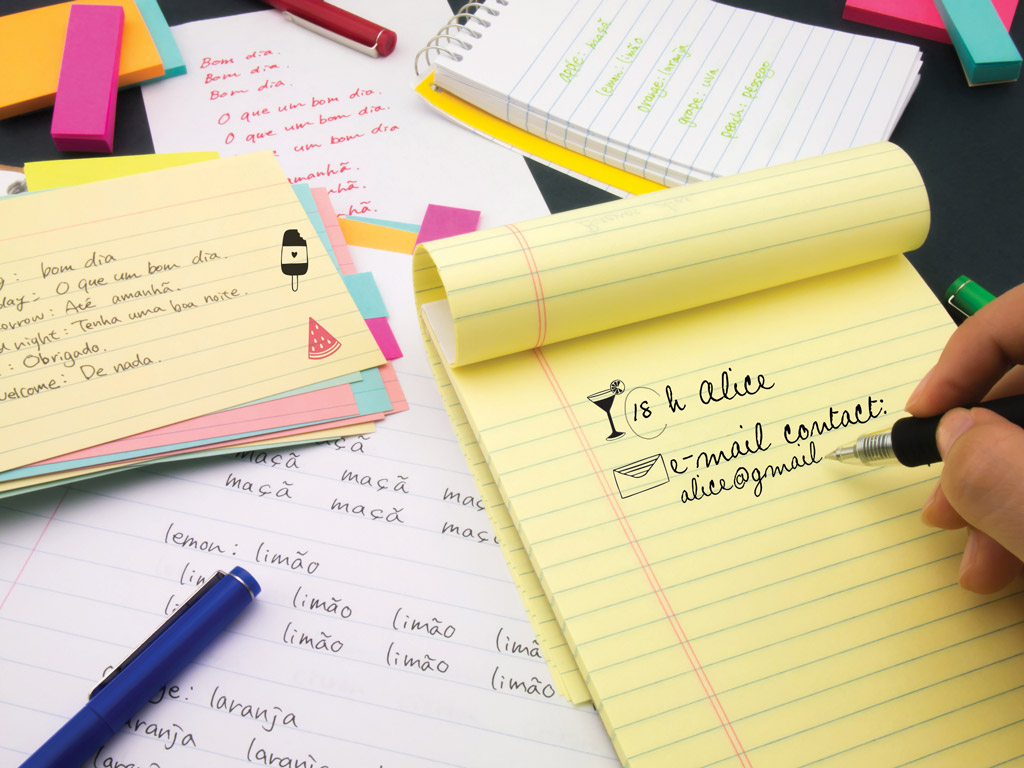 Bom dia.
Bom dia.
Bom dia.
O que um bom dia.
O que um bom dia.
um bom dia
amanhã.
nhã.
hã.
apple: maçã
lemon: limão
orange: laranja
grape: uva
peach: pêssego
: bom dia
day: O que um bom dia.
orrow: Até amanhã.
d night: Tenha uma boa noite.
: Obrigado.
welcome: De nada.
18 h Alice
e-mail contact:
alice@gmail
maçã
maçã maçã maç
maçã maçã maç
lemon: limão
lim limão limão limã
li limão limão limão
ge: laranja
aranja laranja
lara